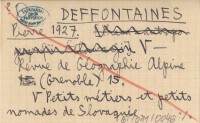 DEFFONTAINES
Pierre 1927.
V—
Revue de Géographie Alpine
(Grenoble) 15.
V Petits métiers et petits
nomades de Slovaquie